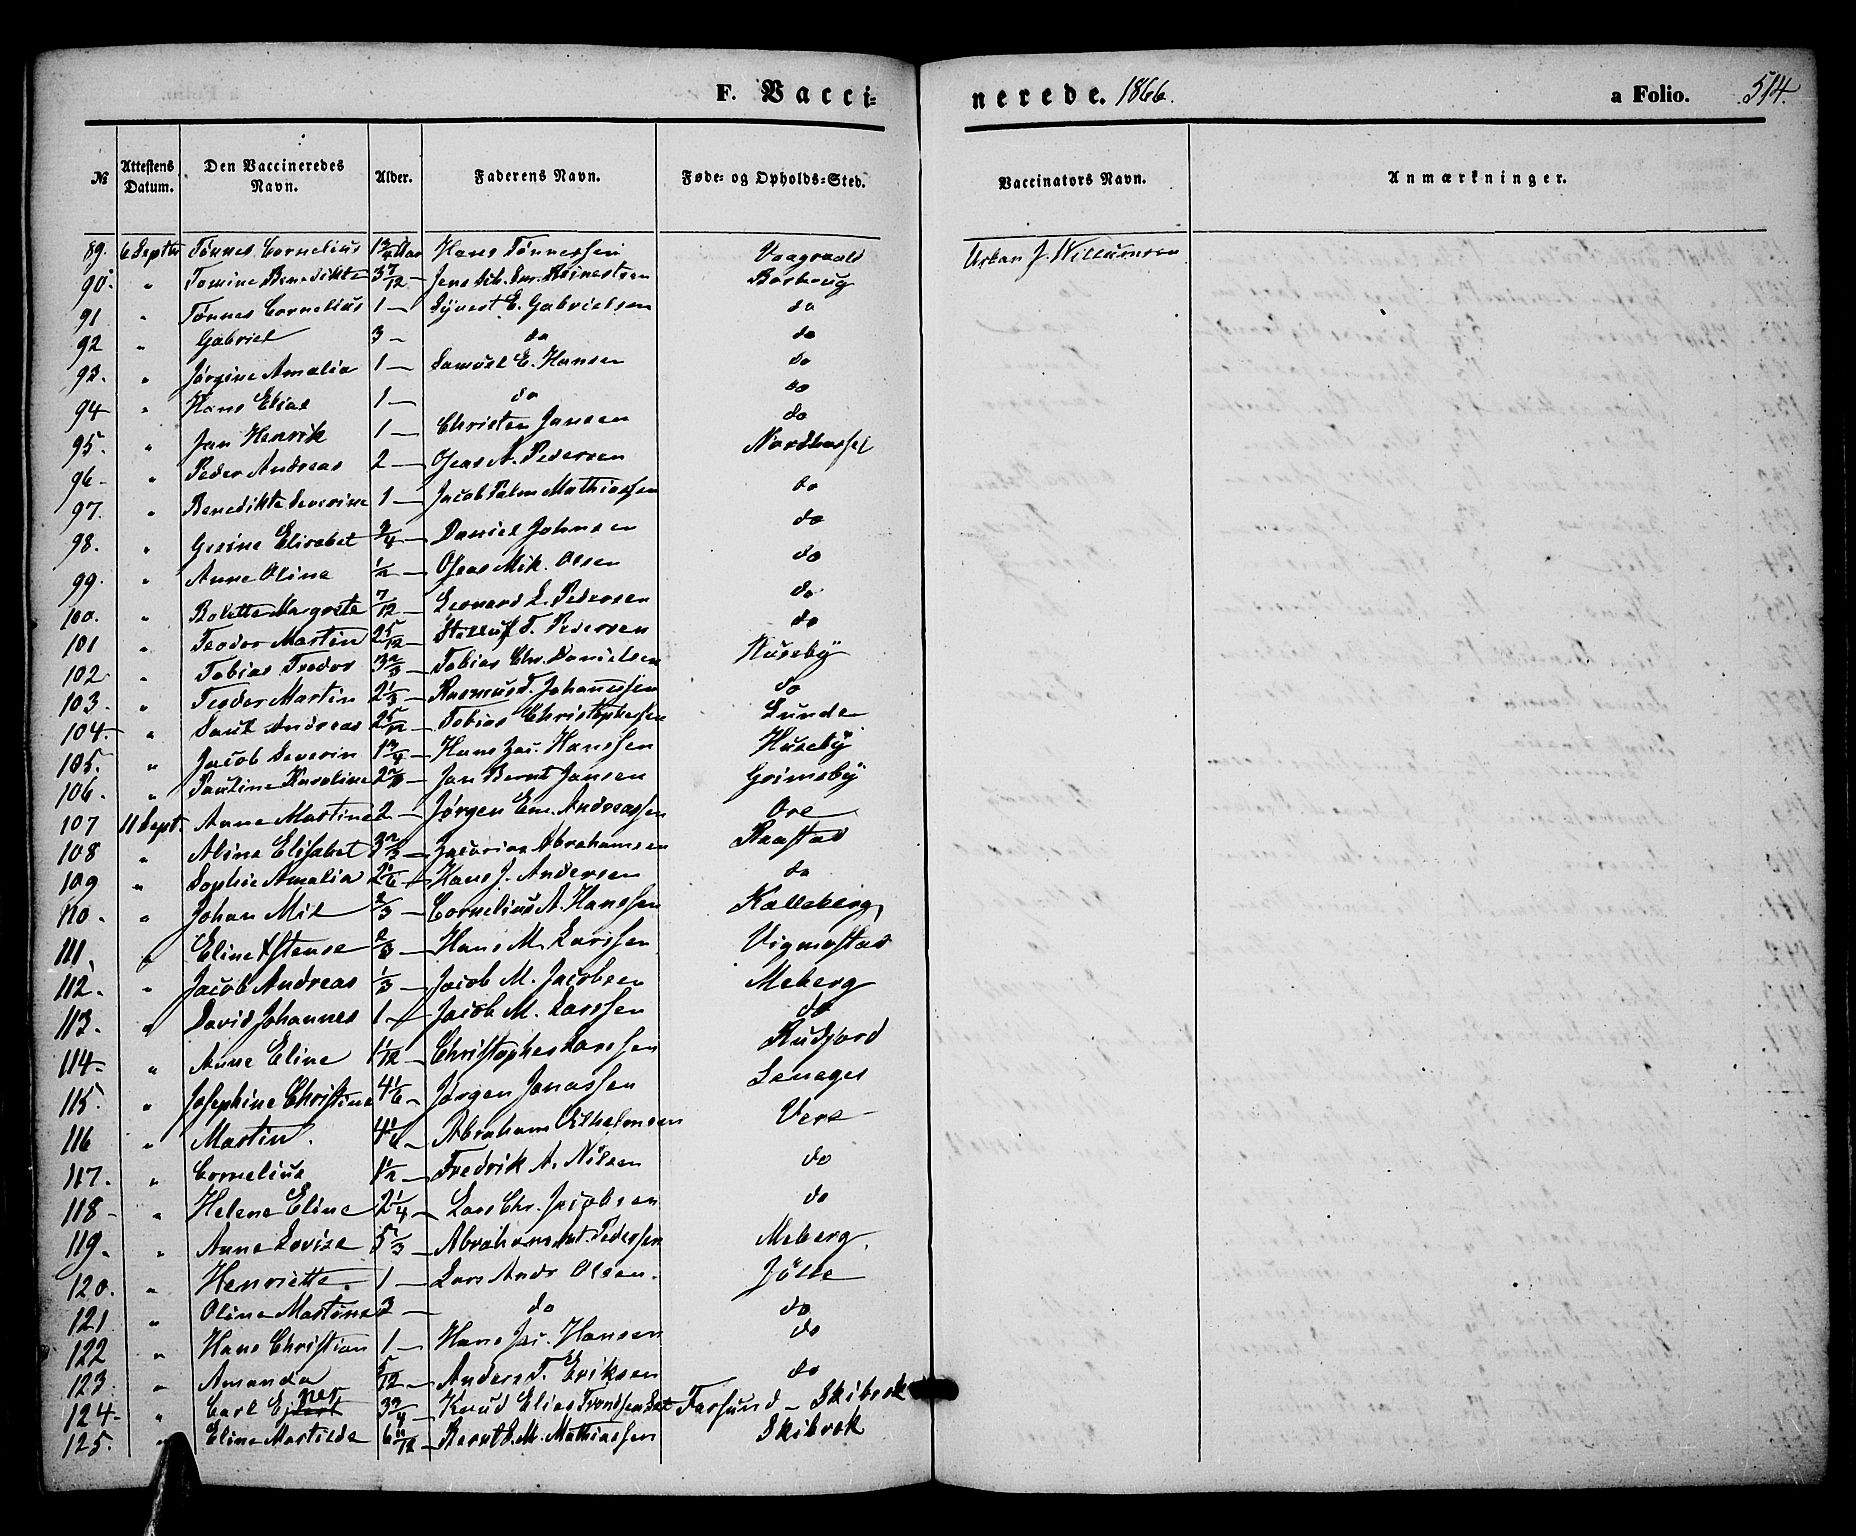 F. Vacci-
nerede. 1866.
a Folio. 514.
№ Attestens Datum. Den Vaccineredes Navn. Alder. Faderens Navn. Føde- og Opholds-Sted. Vaccinators Navn. Anmærkninger.
89. 6 Septbr Tønnes Cornelius 1 3/4 Aar Hans Tønnessen Vaagsvold
90. " Tomine Benedikte 3 7/12 — Jens Reinertsen Borhoug
91 " Tønnes Cornelius 1 — Syvert E. Gabrielsen do
92 " Gabriel 3 — do do
93. " Jørgine Amalia 1 — Samuel E. Hansen do
94 " Hans Elias 1 — do do
95. " Jan Henrik 1 — Christen Jansen do
96. " Peder Andreas 2 — Ojeas A. Pedersen Nordhassel
97. " Benedikte Severine 1 — Jacob Palm Mathiassen do
98. " Gesine Elisabet 3/4 — Daniel Johnsen do
99. " Anne Oline 1/2 — Ojeas Mik. Olsen do
100. " Bolette Margrete 7/12 — Leonard L. Pedersen do
101 " Teodor Martin 2 5/12 — T. Pedersen do
102 " Tobias Teodor 3 2/3 — Tobias Chr. Danielsen Huseby
103. " Teodor Martin 2 1/3 — Rasmus T. Johannssen do
104. " Paul Andreas 2 5/12 — Tobias Christophersen Lunde
105. " Jacob Severin 1 3/4 — Hans Zac. Hanssen Huseby
106. " Pauline Karoline 2 — Jan Bernt Jansen Grimsby
107 11 Sept. Anne Martine 2 — Jørgen Em. Andreassen Ore
108 " Aline Elisabet 3 2/3 — Zacarias Abrahamsen Raastad
109 " Sophie Amalia 2 1/6 — Hans J. Andersen do
110. " Johan Mil 2/3 — Cornelius A. Hanssen Kalleberg
111. " Eline 2/3 — Hans M. Larssen Vigmostad
112. " Jacob Andreas 1/3 — Jacob M. Jacobsen Meberg
113. " David Johannes 1 — Jacob M. Larssen do
114. " Anne Eline 1 1/12 — Christopher Larssen Rudjord
115. " Josephine Christine 4 1/6 — Jørgen Jonassen
116 " Martin. 4 1/4 — Abraham Vilhelmsen Vere
117. " Cornelius 1 1/2 — Fredrik A. Nilsen do
118 " Helene Eline 2 1/4 — Lars Chr. Jacobsen do
119. " Anne Lovise 5 2/3 — Abraham Ant. Pedersen Meberg
120. " Henriette 1 — Lars Andr Olsen. Jölle
121 " Oline Martine 3 — do do
122 " Hans Christian 1 — Hans Jac. Hansen do
123. " Amanda 5/12 — Anders T. Eriksen do
124 " Carl Ejner 3 3/4 — Knud Elias Farsund - Skibrok
125. " Eline Martilde 6 11/12 — Bernt S. M. Mathiassen Skibrok